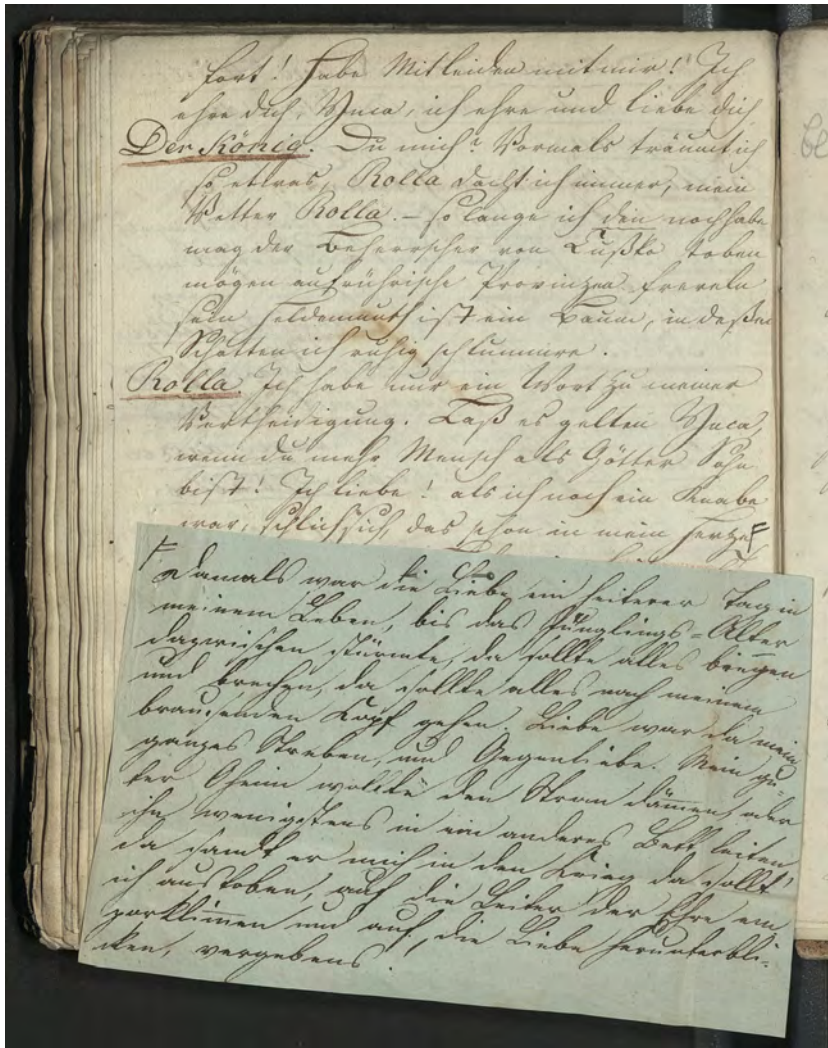 fort! Habe Mitleiden mit mir! Ich
ehre dich, Ynca, ich ehre und liebe dich
Der König. Du mich? Vormals träumt ich
so etwas, Rolla dacht ich immer, mein
Vetter Rolla. – so lange ich den noch habe
mag der Beherrscher von Cußko toben
mögen aufrührische Provinzen freveln
sein Heldenmuth ist ein Baum, in deßen
Schatten ich ruhig schlummre.
Rolla Ich habe nur ein Wort zu meiner
Vertheidigung. Laß es gelten Ynca,
wenn du mehr Mensch als Götter Sohn
bist! Ich liebe! als ich noch ein Knabe
war, schlich sich das schon in mein Herze F
F
Damals war die Liebe ein heiterer Tag in
meinem Leben, bis das Jünglings=Alter
dazwischen stürmte, da sollte alles biegen
und brechen, da sollte alles nach meinem
brausenden Kopf gehen. Liebe war da mein
ganzes Streben, und Gegenliebe. Mein gu=
ter Oheim wollte den Strom dämmen, oder
ihn wenigstens in ein anderes Bett leiten,
da sandt er mich in den Krieg da sollt'
ich austoben, auf die Leiter der Ehre em=
porklimmen und auf die Liebe herunterbli=
cken, vergebens.